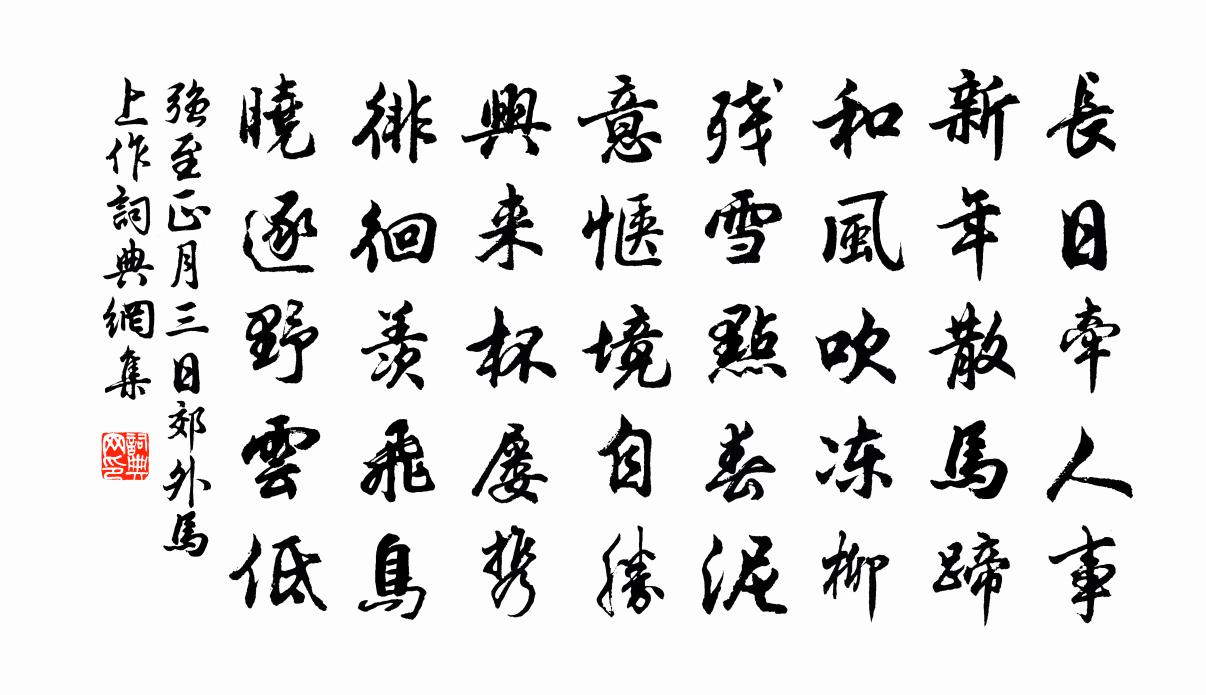 長日牽人事
新年散馬蹄
和風吹冻柳
残雪點春泥
意惬境自勝
興来杯屡携
徘徊羨飛鳥
曉逐野雲低
強至正月三日郊外馬
上作詞典網集
詞典网印